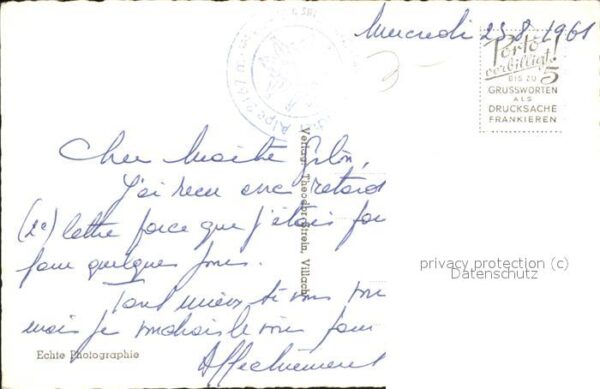 Mercredi 23.8.1961
Porto
verbilligt!
BIS ZU 5
GRUSSWORTEN
ALS
DRUCKSACHE
FRANKIEREN
Cher Maître
J'ai reçu avec retard
(2e) lettre parce que j'étais
pour quelques jours.
Tant mieux si vous
mais je voudrais le voir pour
Affectueusement
Verlag Theodor Strein, Villach
Echte Photographie
privacy protection (c)
Datenschutz